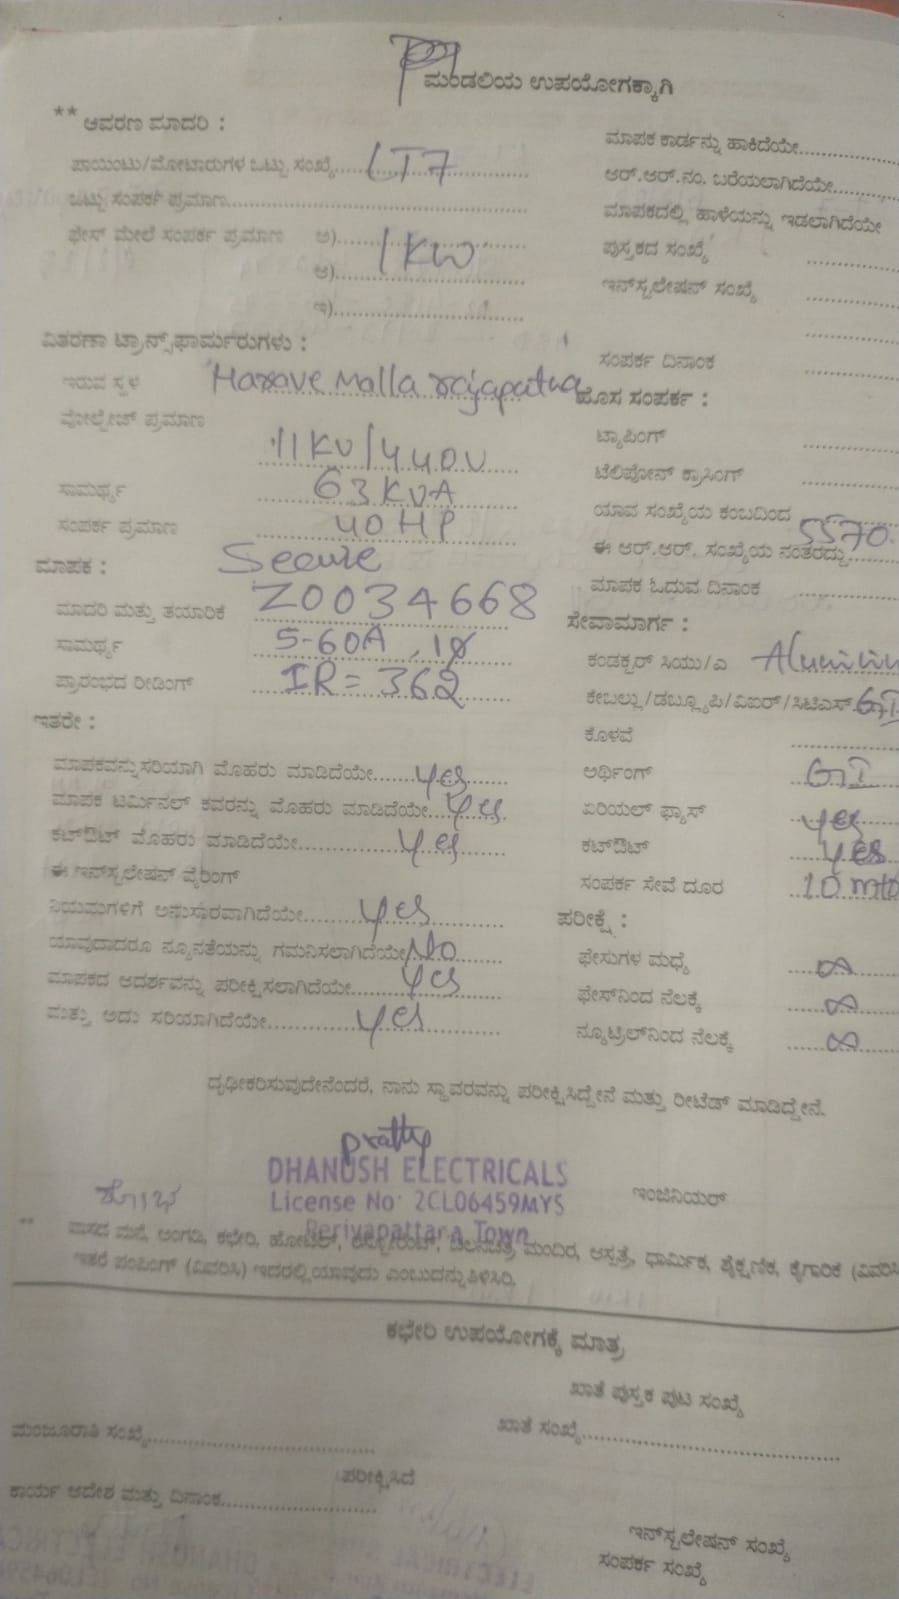 ಮಂಡಲಿಯ ಉಪಯೋಗಕ್ಕಾಗಿ
** ಆವರಣ ಮಾದರಿ :
ಪಾಯಿಂಟು/ಮೋಟಾರುಗಳ ಒಟ್ಟು ಸಂಖ್ಯೆ.....LT7
ಒಟ್ಟು ಸಂಪರ್ಕ ಪ್ರಮಾಣ
ಫೇಸ್ ಮೇಲೆ ಸಂಪರ್ಕ ಪ್ರಮಾಣ ಅ) 1KW
ಆ)
ಇ)
ವಿತರಣಾ ಟ್ರಾನ್ಸ್‌ಫಾರ್ಮರುಗಳು :
ಇರುವ ಸ್ಥಳ Harave Malla rajapatna
ವೋಲ್ಟೇಜ್ ಪ್ರಮಾಣ
11KV/440V
ಸಾಮರ್ಥ್ಯ 63KVA
ಸಂಪರ್ಕ ಪ್ರಮಾಣ 40HP
ಮಾಪಕ : Secure
ಮಾದರಿ ಮತ್ತು ತಯಾರಿಕೆ Z0034668
ಸಾಮರ್ಥ್ಯ 5-60A, 1ϕ
ಪ್ರಾರಂಭದ ರೀಡಿಂಗ್ IR = 362
ಇತರೇ :
ಮಾಪಕವನ್ನು ಸರಿಯಾಗಿ ಮೊಹರು ಮಾಡಿದೆಯೇ.....yes
ಮಾಪಕ ಟರ್ಮಿನಲ್ ಕವರನ್ನು ಮೊಹರು ಮಾಡಿದೆಯೇ..yes
ಕಟ್‌ಔಟ್ ಮೊಹರು ಮಾಡಿದೆಯೇ.....yes
ಈ ಇನ್‌ಸ್ಟಲೇಷನ್ ವೈರಿಂಗ್
ನಿಯಮಗಳಿಗೆ ಅನುಸಾರವಾಗಿದೆಯೇ.....yes
ಯಾವುದಾದರೂ ನ್ಯೂನತೆಯನ್ನು ಗಮನಿಸಲಾಗಿದೆಯೇ No
ಮಾಪಕದ ಆದರ್ಶವನ್ನು ಪರೀಕ್ಷಿಸಲಾಗಿದೆಯೇ.....yes
ಮತ್ತು ಅದು ಸರಿಯಾಗಿದೆಯೇ.....yes
ಮಾಪಕ ಕಾರ್ಡನ್ನು ಹಾಕಿದೆಯೇ
ಆರ್.ಆರ್.ನಂ. ಬರೆಯಲಾಗಿದೆಯೇ
ಮಾಪಕದಲ್ಲಿ ಹಾಳೆಯನ್ನು ಇಡಲಾಗಿದೆಯೇ
ಪುಸ್ತಕದ ಸಂಖ್ಯೆ
ಇನ್‌ಸ್ಟಲೇಷನ್ ಸಂಖ್ಯೆ
ಸಂಪರ್ಕ ದಿನಾಂಕ
ಹೊಸ ಸಂಪರ್ಕ :
ಟ್ಯಾಪಿಂಗ್
ಟೆಲಿಪೋನ್ ಕ್ರಾಸಿಂಗ್
ಯಾವ ಸಂಖ್ಯೆಯ ಕಂಬದಿಂದ
ಈ ಆರ್.ಆರ್. ಸಂಖ್ಯೆಯ ನಂತರದ್ದು 5570
ಮಾಪಕ ಓದುವ ದಿನಾಂಕ
ಸೇವಾಮಾರ್ಗ :
ಕಂಡಕ್ಟರ್ ಸಿಯು/ಎ
ಕೇಬಲ್ಲು/ಡಬ್ಲ್ಯೂಪಿ/ವಿಐರ್/ಸಿಟಿಎಸ್ GI
ಕೊಳವೆ
ಅರ್ಥಿಂಗ್ GI
ಏರಿಯಲ್ ಫ್ಯೂಸ್ yes
ಕಟ್‌ಔಟ್ yes
ಸಂಪರ್ಕ ಸೇವೆ ದೂರ 10
ಪರೀಕ್ಷೆ :
ಫೇಸುಗಳ ಮಧ್ಯೆ ∞
ಫೇಸ್‌ನಿಂದ ನೆಲಕ್ಕೆ ∞
ನ್ಯೂಟ್ರಲ್‌ನಿಂದ ನೆಲಕ್ಕೆ ∞
ದೃಢೀಕರಿಸುವುದೇನೆಂದರೆ, ನಾನು ಸ್ಥಾವರವನ್ನು ಪರೀಕ್ಷಿಸಿದ್ದೇನೆ ಮತ್ತು ರೀಟೆಡ್ ಮಾಡಿದ್ದೇನೆ.
DHANUSH ELECTRICALS
License No 2CL06459MYS
Periyapattara Town
ಇಂಜಿನಿಯರ್
** ವಾಸದ ಮನೆ, ಅಂಗಡಿ, ಕಛೇರಿ, ಹೋಟೆಲ್, ರೆಸ್ಟೋರೆಂಟ್, ಚಲನಚಿತ್ರ ಮಂದಿರ, ಆಸ್ಪತ್ರೆ, ಧಾರ್ಮಿಕ, ಶೈಕ್ಷಣಿಕ, ಕೈಗಾರಿಕೆ
ಇತರೆ ಪಂಪಿಂಗ್ (ವಿವರಿಸಿ) ಇದರಲ್ಲಿ ಯಾವುದು ಎಂಬುದನ್ನು ತಿಳಿಸಿರಿ.
ಕಛೇರಿ ಉಪಯೋಗಕ್ಕೆ ಮಾತ್ರ
ಖಾತೆ ಪುಸ್ತಕ ಪುಟ ಸಂಖ್ಯೆ
ಮಂಜೂರಾತಿ ಸಂಖ್ಯೆ..... ಖಾತೆ ಸಂಖ್ಯೆ.....
ಪರೀಕ್ಷಿಸಿದೆ
ಕಾರ್ಯ ಆದೇಶ ಮತ್ತು ದಿನಾಂಕ
ಇನ್‌ಸ್ಟಲೇಷನ್ ಸಂಖ್ಯೆ
ಸಂಪರ್ಕ ಸಂಖ್ಯೆ